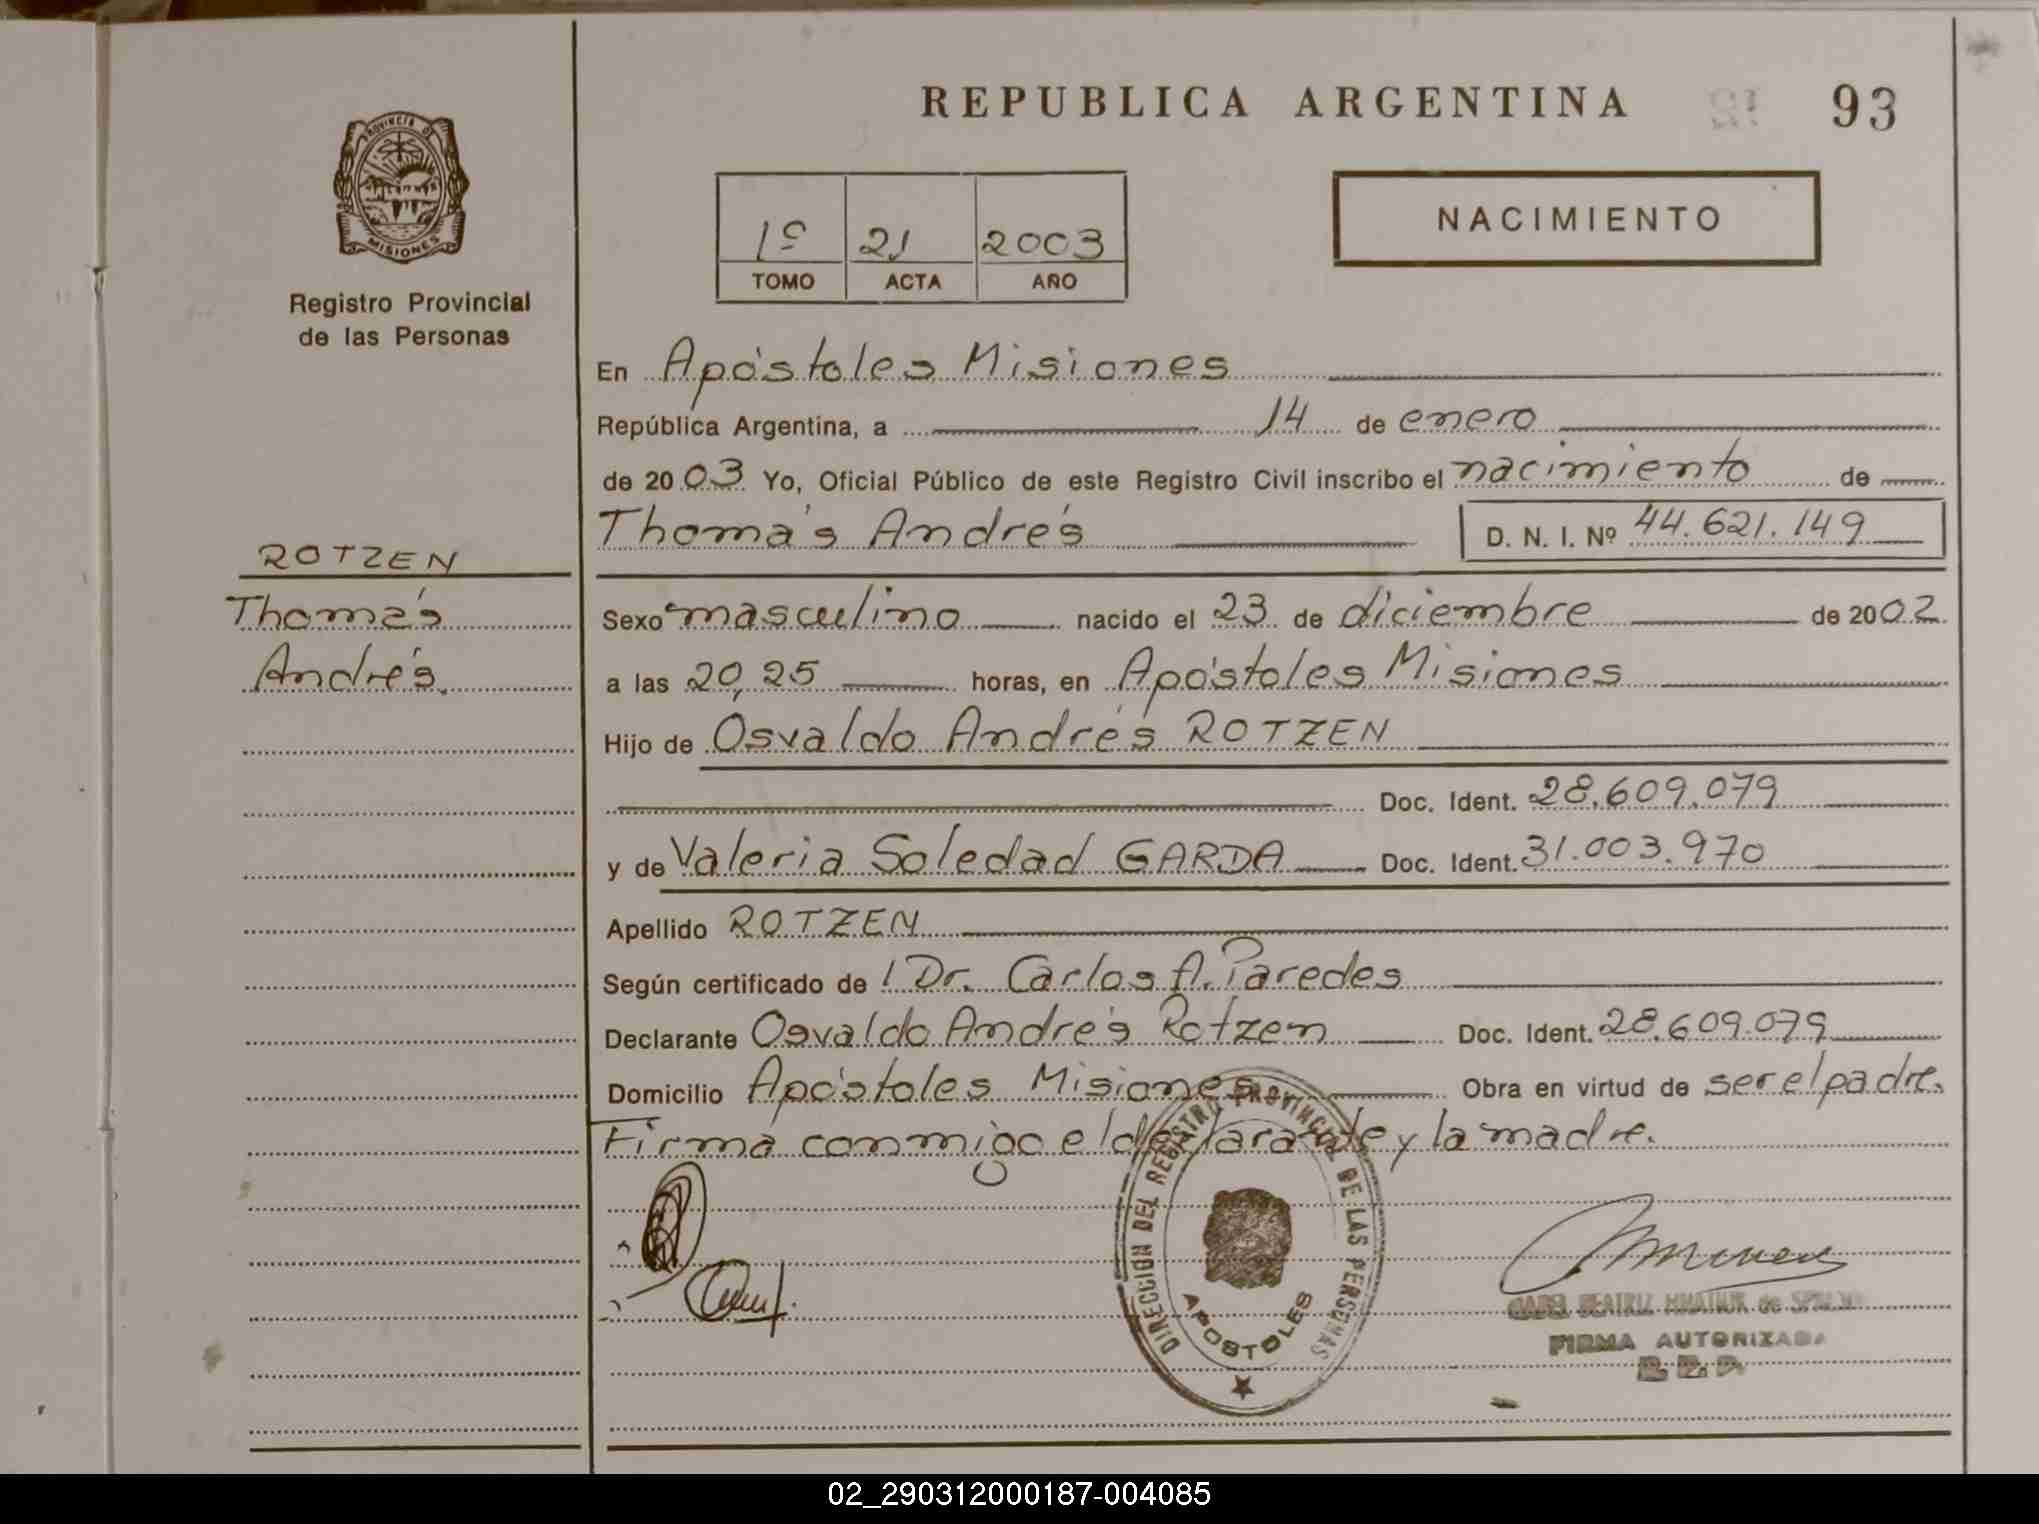 REPUBLICA ARGENTINA 93
PROVINCIA DE
MISIONES
Registro Provincial
de las Personas
1º 21 2003
TOMO ACTA AÑO
NACIMIENTO
En Apóstoles Misiones
República Argentina, a 14 de enero
de 2003 Yo, Oficial Público de este Registro Civil inscribo el nacimiento de
Thomás Andrés D. N. I. Nº 44.621.149
ROTZEN
Thomás
Andrés.
Sexo masculino nacido el 23 de diciembre de 2002.
a las 20,25 horas, en Apóstoles Misiones
Hijo de Osvaldo Andrés ROTZEN
Doc. Ident. 28.609.079
y de Valeria Soledad GARDA Doc. Ident. 31.003.970
Apellido ROTZEN
Según certificado de Dr. Carlos A. Paredes
Declarante Osvaldo Andrés Rotzen Doc. Ident. 28.609.079
Domicilio Apóstoles Misiones Obra en virtud de ser el padre.
Firma conmigo el declarante y la madre.
DIRECCION DEL REGISTRO PROVINCIAL DE LAS PERSONAS
APOSTOLES
BEATRIZ de
FIRMA AUTORIZADA
02_290312000187-004085